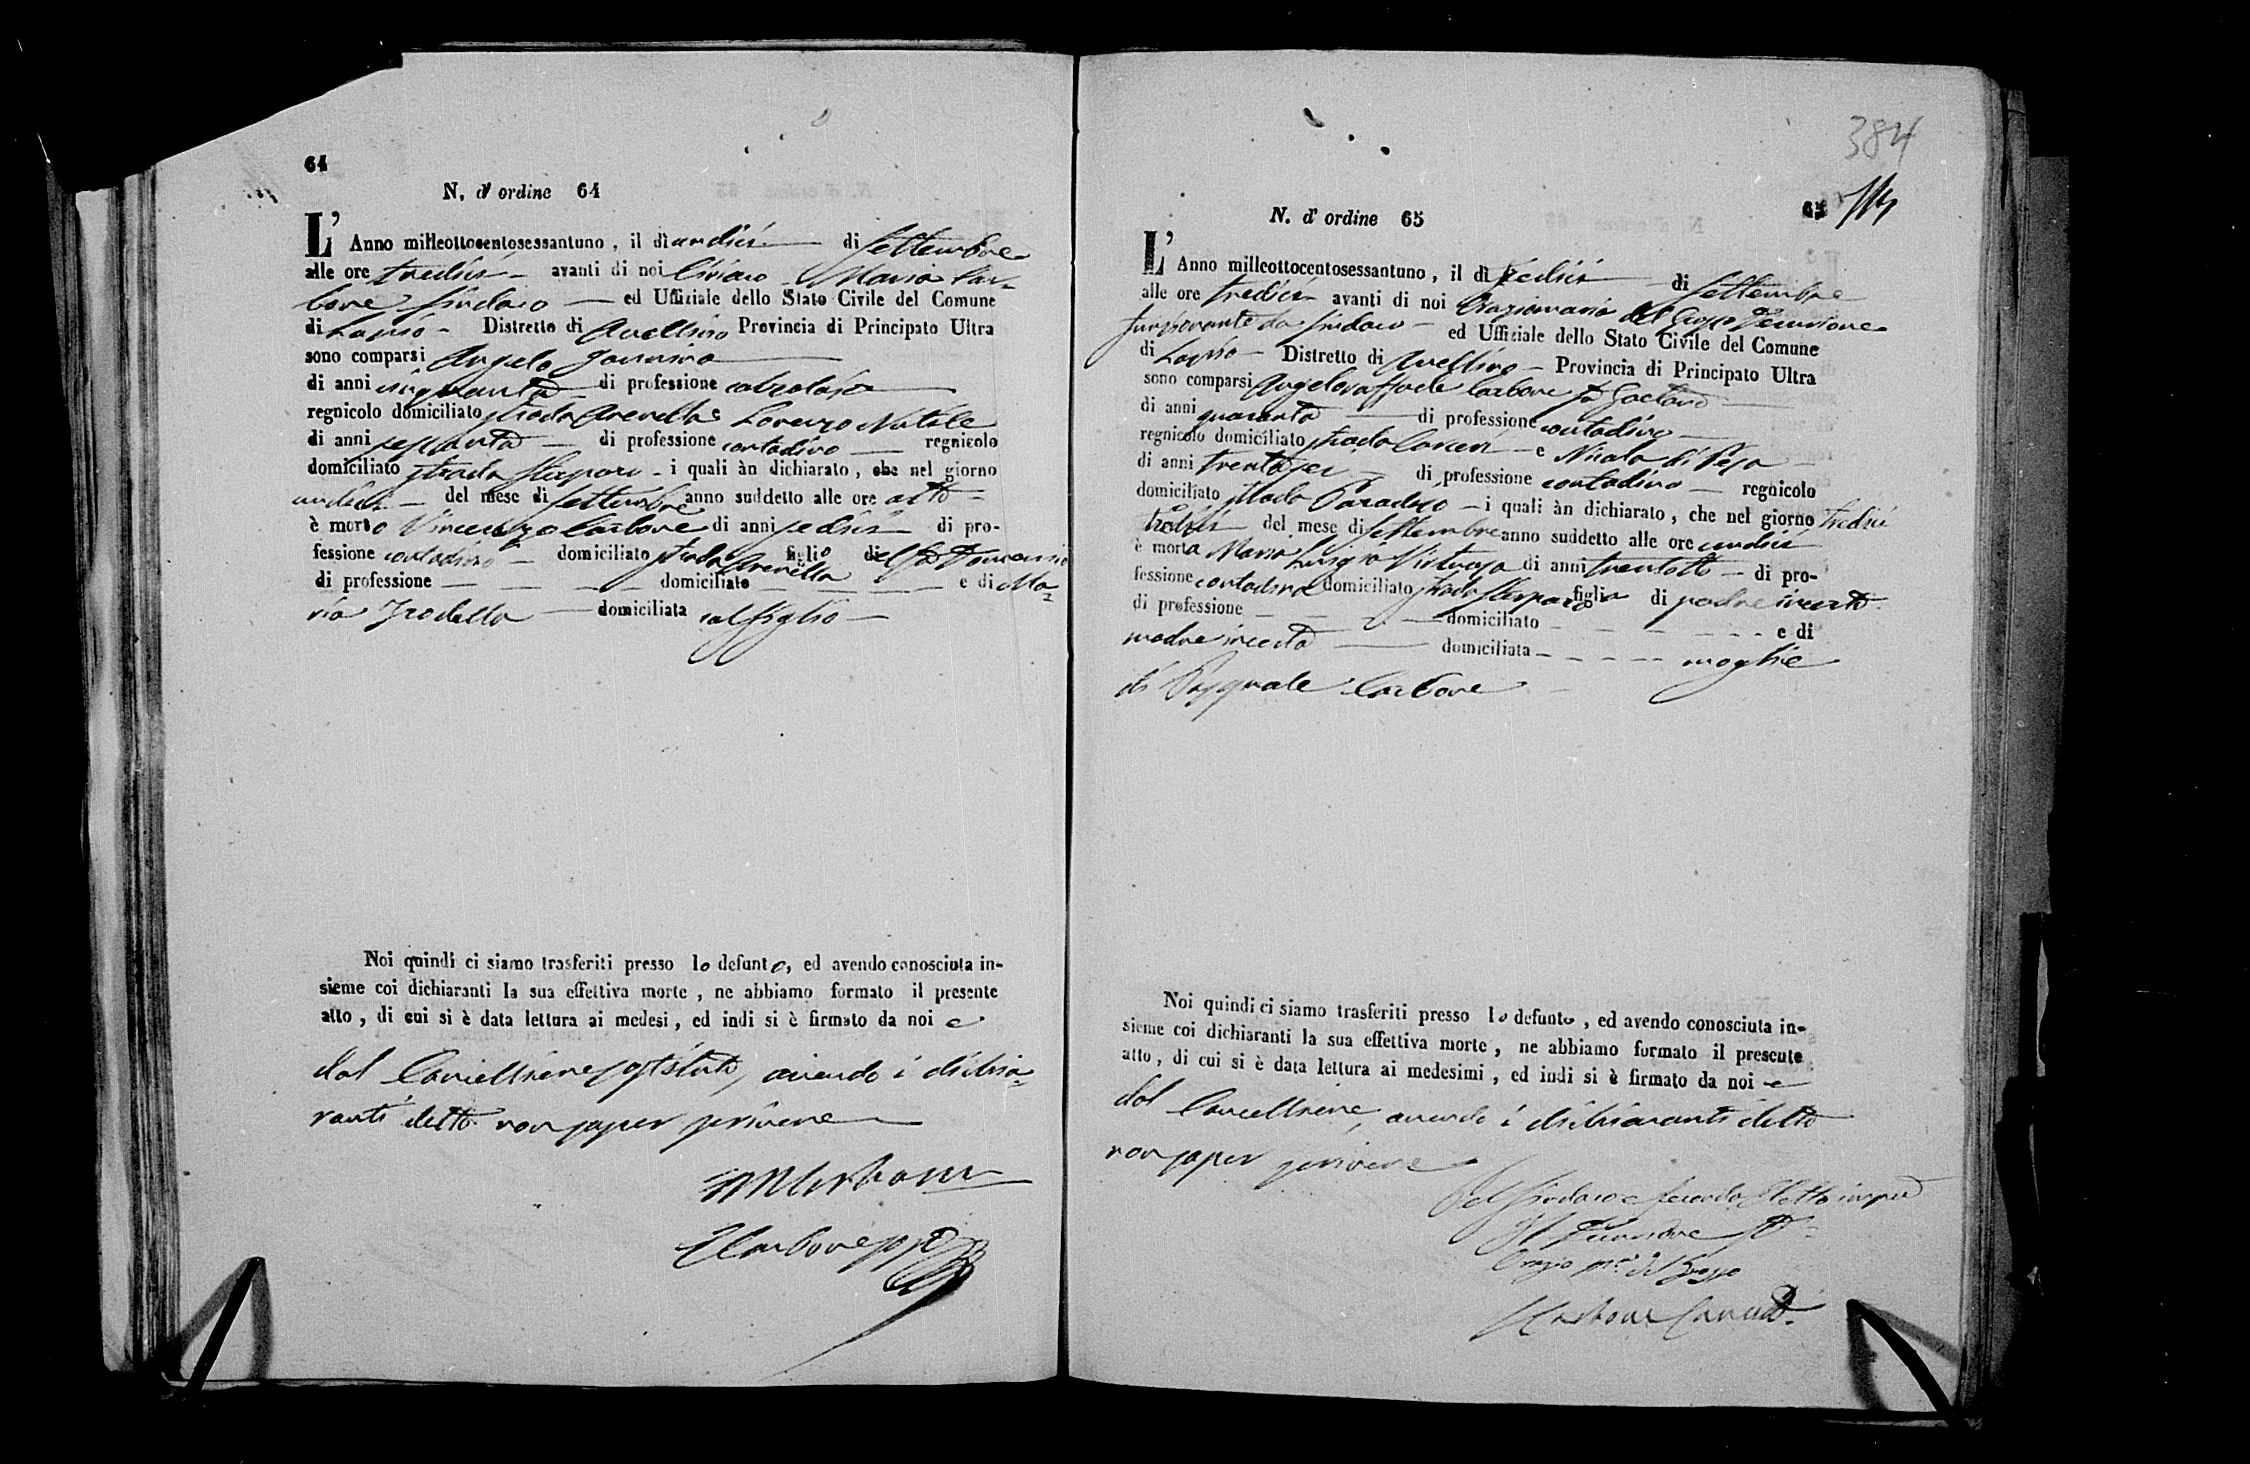 64
N. d' ordine 64
L' Anno milleottocentosessantuno, il dì undici di Settembre
alle ore tredici avanti di noi Ciriaco Maria Car-
bone Sindaco ed Uffiziale dello Stato Civile del Comune
di Lapio Distretto di Avellino Provincia di Principato Ultra
sono comparsi Angelo
di anni cinquanta di professione calzolaio
regnicolo domiciliato strada Arenella e Lorenzo Natale
di anni sessanta di professione contadino regnicolo
domiciliato strada i quali àn dichiarato, che nel giorno
undici del mese di Settembre anno suddetto alle ore otto
è morto Vincenzo Carbone di anni sedici di pro-
fessione contadino domiciliato strada Arenella figlio del fu Domenico
di professione domiciliato e di Ma=
ria domiciliata col figlio
Noi quindi ci siamo trasferiti presso lo defunto, ed avendo conosciuta in-
sieme coi dichiaranti la sua effettiva morte, ne abbiamo formato il presente
atto, di cui si è data lettura ai medesi, ed indi si è firmato da noi e
dal Cancelliere sostituto, avendo i dichia=
ranti detto non saper scrivere
CMCarbone
Carbone
384
65
N. d' ordine 65
L' Anno milleottocentosessantuno, il dì tredici di Settembre
alle ore tredici avanti di noi Oraziomaria del Grosso Decurione
funzionante da Sindaco ed Uffiziale dello Stato Civile del Comune
di Lapio Distretto di Avellino Provincia di Principato Ultra
sono comparsi Angeloraffaele Carbone fu Gaetano
di anni quaranta di professione contadino
regnicolo domiciliato strada Carceri e Nicola di
di anni trentasei di professione contadino regnicolo
domiciliato strada Paradiso i quali àn dichiarato, che nel giorno tredici
tredici del mese di Settembre anno suddetto alle ore undici
è morta Maria Luigia Virtuosa di anni trentotto di pro-
fessione contadina domiciliato strada figlia di padre incerto
di professione domiciliato e di
madre incerta domiciliata moglie
di Pasquale Carbone
Noi quindi ci siamo trasferiti presso lo defunto, ed avendo conosciuta in-
sieme coi dichiaranti la sua effettiva morte, ne abbiamo formato il presente
atto, di cui si è data lettura ai medesimi, ed indi si è firmato da noi e
dal Cancelliere, avendo i dichiaranti detto
non saper scrivere
Pel Sindaco e secondo Eletto
Il Decurione
Orazio Ma del Grosso
Carbone